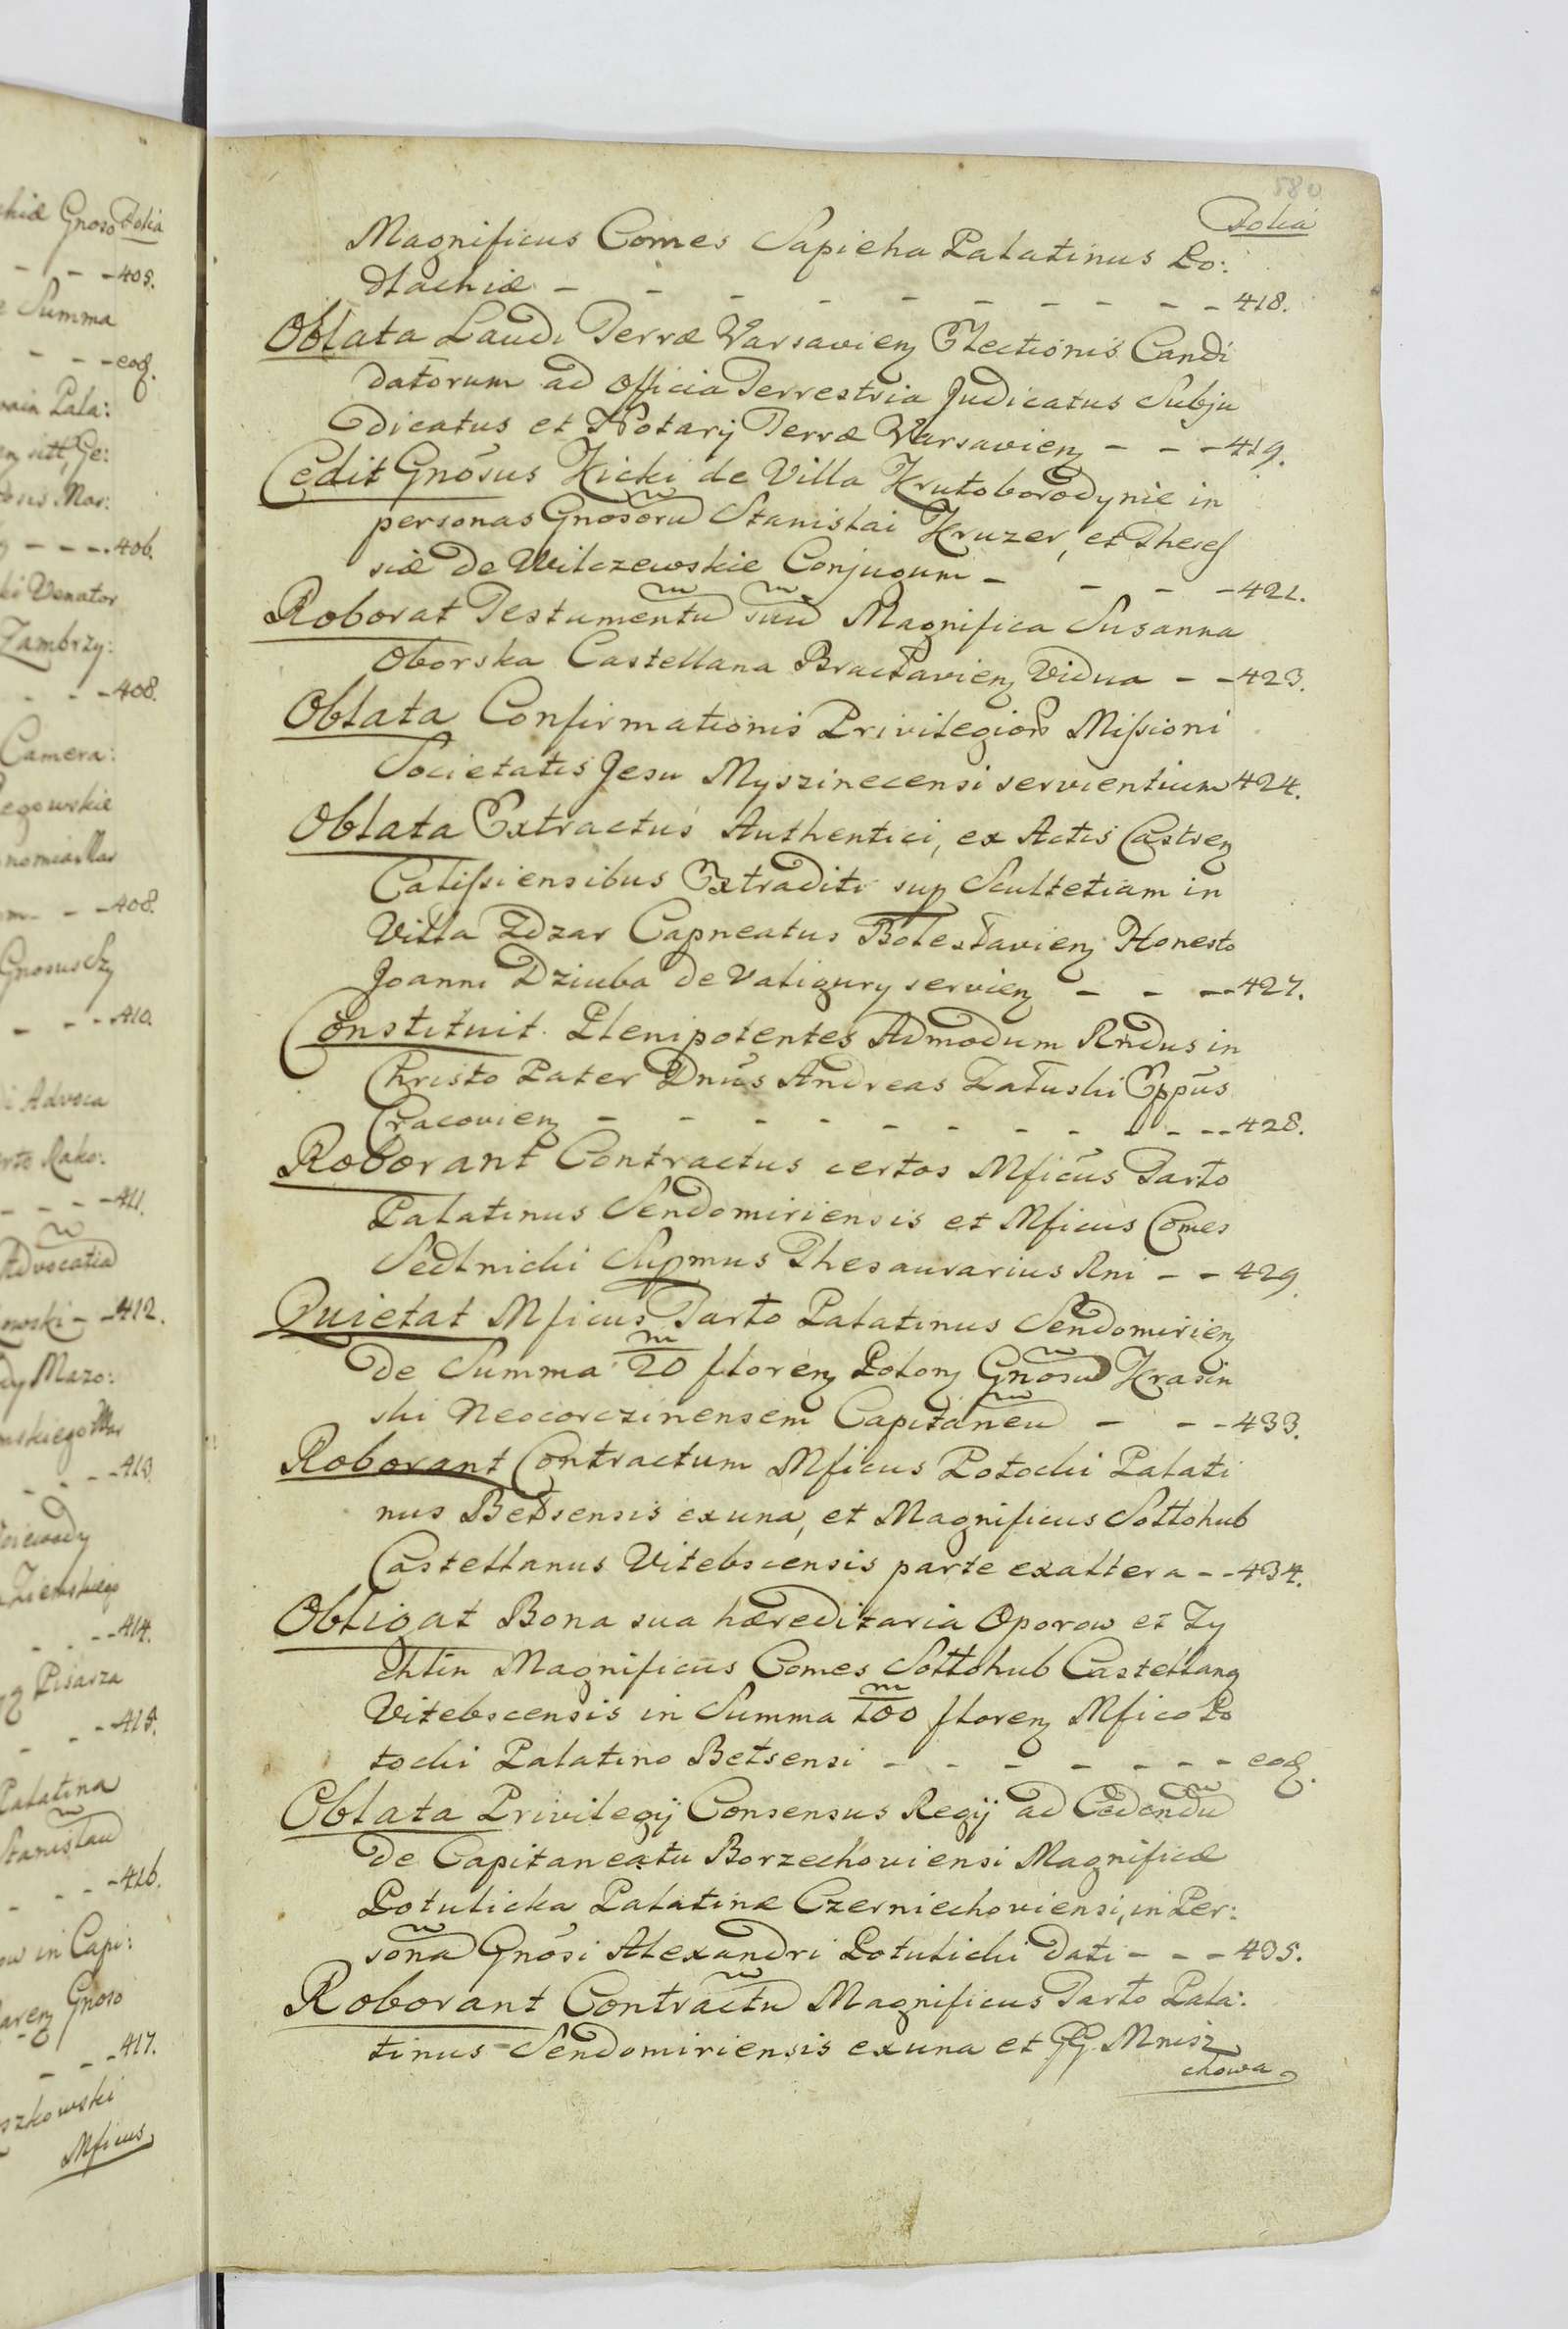 580
Folia
Magnificus Comes Sapieha Palatinus Po:
dlachiæ - - - - - - - - - - 418.
Oblata Laudi Terræ Varsavien Electionis Candi
datorum ad officia Terrestria Judicatus Subju
dicatus et Notarij Terræ Varsavien - - - 419.
Cedit Gnōsus Kicki de Villa Krutoborodynie in
personas Gnosorũ Stanislai Kruzer, et There
siæ de Wilczewskie Conjugum - - - - 421.
Roborat Testamentũ suũ Magnifica Susanna
Oborska Castellana Bracłavien Vidua - - 423.
Oblata Confirmationis Privilegior Missioni
Societatis Jesu Myszinecensi servientium 424.
Oblata Extractus Authentici, ex Actis Castren
Calissiensibus Extraditi sup Scultetiam in
Villa Zdzar Capneatus Bolesłavien Honesto
Joanni Dziuba de Valigury servien - - - 427.
Constituit Plenipotentes Admodum Rndus in
Christo Pater Dnūs Andreas Załuski Eppūs
Cracovien - - - - - - - - - - 428.
Roborant Contractus certos Mficūs Tarło
Palatinus Sendomiriensis et Mficus Comes
Sedlnicki Supmus Thesaurarius Rni - - 429.
Quietat Mficus Tarło Palatinus Sendomirien
de Summa 20 m floren Polon Gnosũ Krasin
ski Neocorczinensem Capitaneũ - - - 433.
Roborant Contractum Mficus Potocki Palati
nus Bełsensis exuna, et Magnificus Sołłohub
Castellanus Vitebscensis parte exaltera - - 434.
Obligat Bona sua hæreditaria Oporow et Zy
chlin Magnificus Comes Sołłohub Castellang
Vitebscensis in Summa 100 m floren Mfico Po
tocki Palatino Bełsensi - - - - - - - eod.
Oblata Privilegij Consensus Regij ad Cedendũ
de Capitaneatu Borzechoviensi Magnificæ
Potulicka Palatinæ Czerniechoviensi, in Per:
sonã Gnōsi Alexandri Potulicki dati - - - 435.
Roborant Contractũ Magnificus Tarło Pala:
tinus Sendomiriensis exuna et GG. Mnisz
chowa